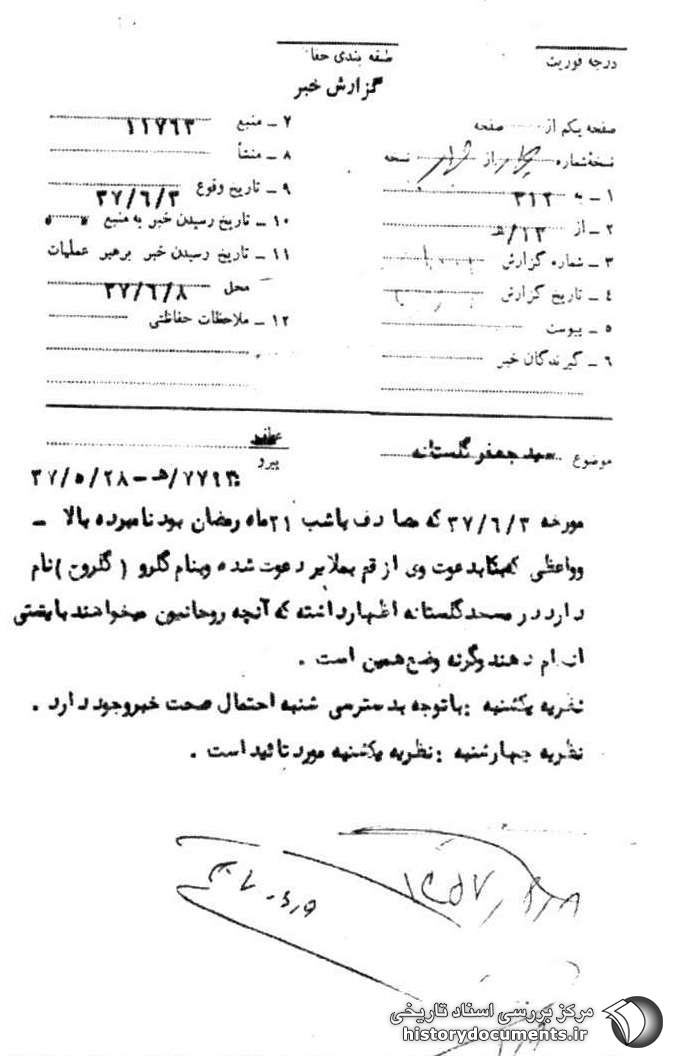 درجه فوریت
طبقه بندی حفا
گزارش خبر
صفحه یکم از صفحه
نسخه شماره چهار از چهار نسخه
۱ – به ۳۱۲
۲ – از ۱۳/هـ
۳ – شماره گزارش
۴ – تاریخ گزارش
۵ – پیوست
۶ – گیرندگان خبر
۷ – منبع ۱۱۷۶۳
۸ – منشأ
۹ – تاریخ وقوع ۳۷/۶/۳
۱۰ – تاریخ رسیدن خبر به منبع
۱۱ – تاریخ رسیدن خبر برهبر عملیات
محل ۳۷/۶/۸
۱۲ – ملاحظات حفاظتی
موضوع سید جعفر گلستانه
عطف
پیرو
۳۷/۵/۲۸ – هـ/
مورخه ۳۷/۶/۳ که مصادف باشب ۲۱ماه رمضان بود نامبرده بالا –
وواعظی که بنا بدعوت وی از قم بملایر دعوت شده وبنام گلرو (گلرون) نام
دارد در مسجد گلستانه اظهار داشته که آنچه روحانیون میخواهند بایستی
انجام دهند وگرنه وضع همین است .
نظریه یکشنبه : باتوجه بدسترسی شنبه احتمال صحت خبر وجود دارد .
نظریه چهارشنبه : نظریه یکشنبه مورد تائید است .
مرکز بررسی اسناد تاریخی
historydocuments.ir